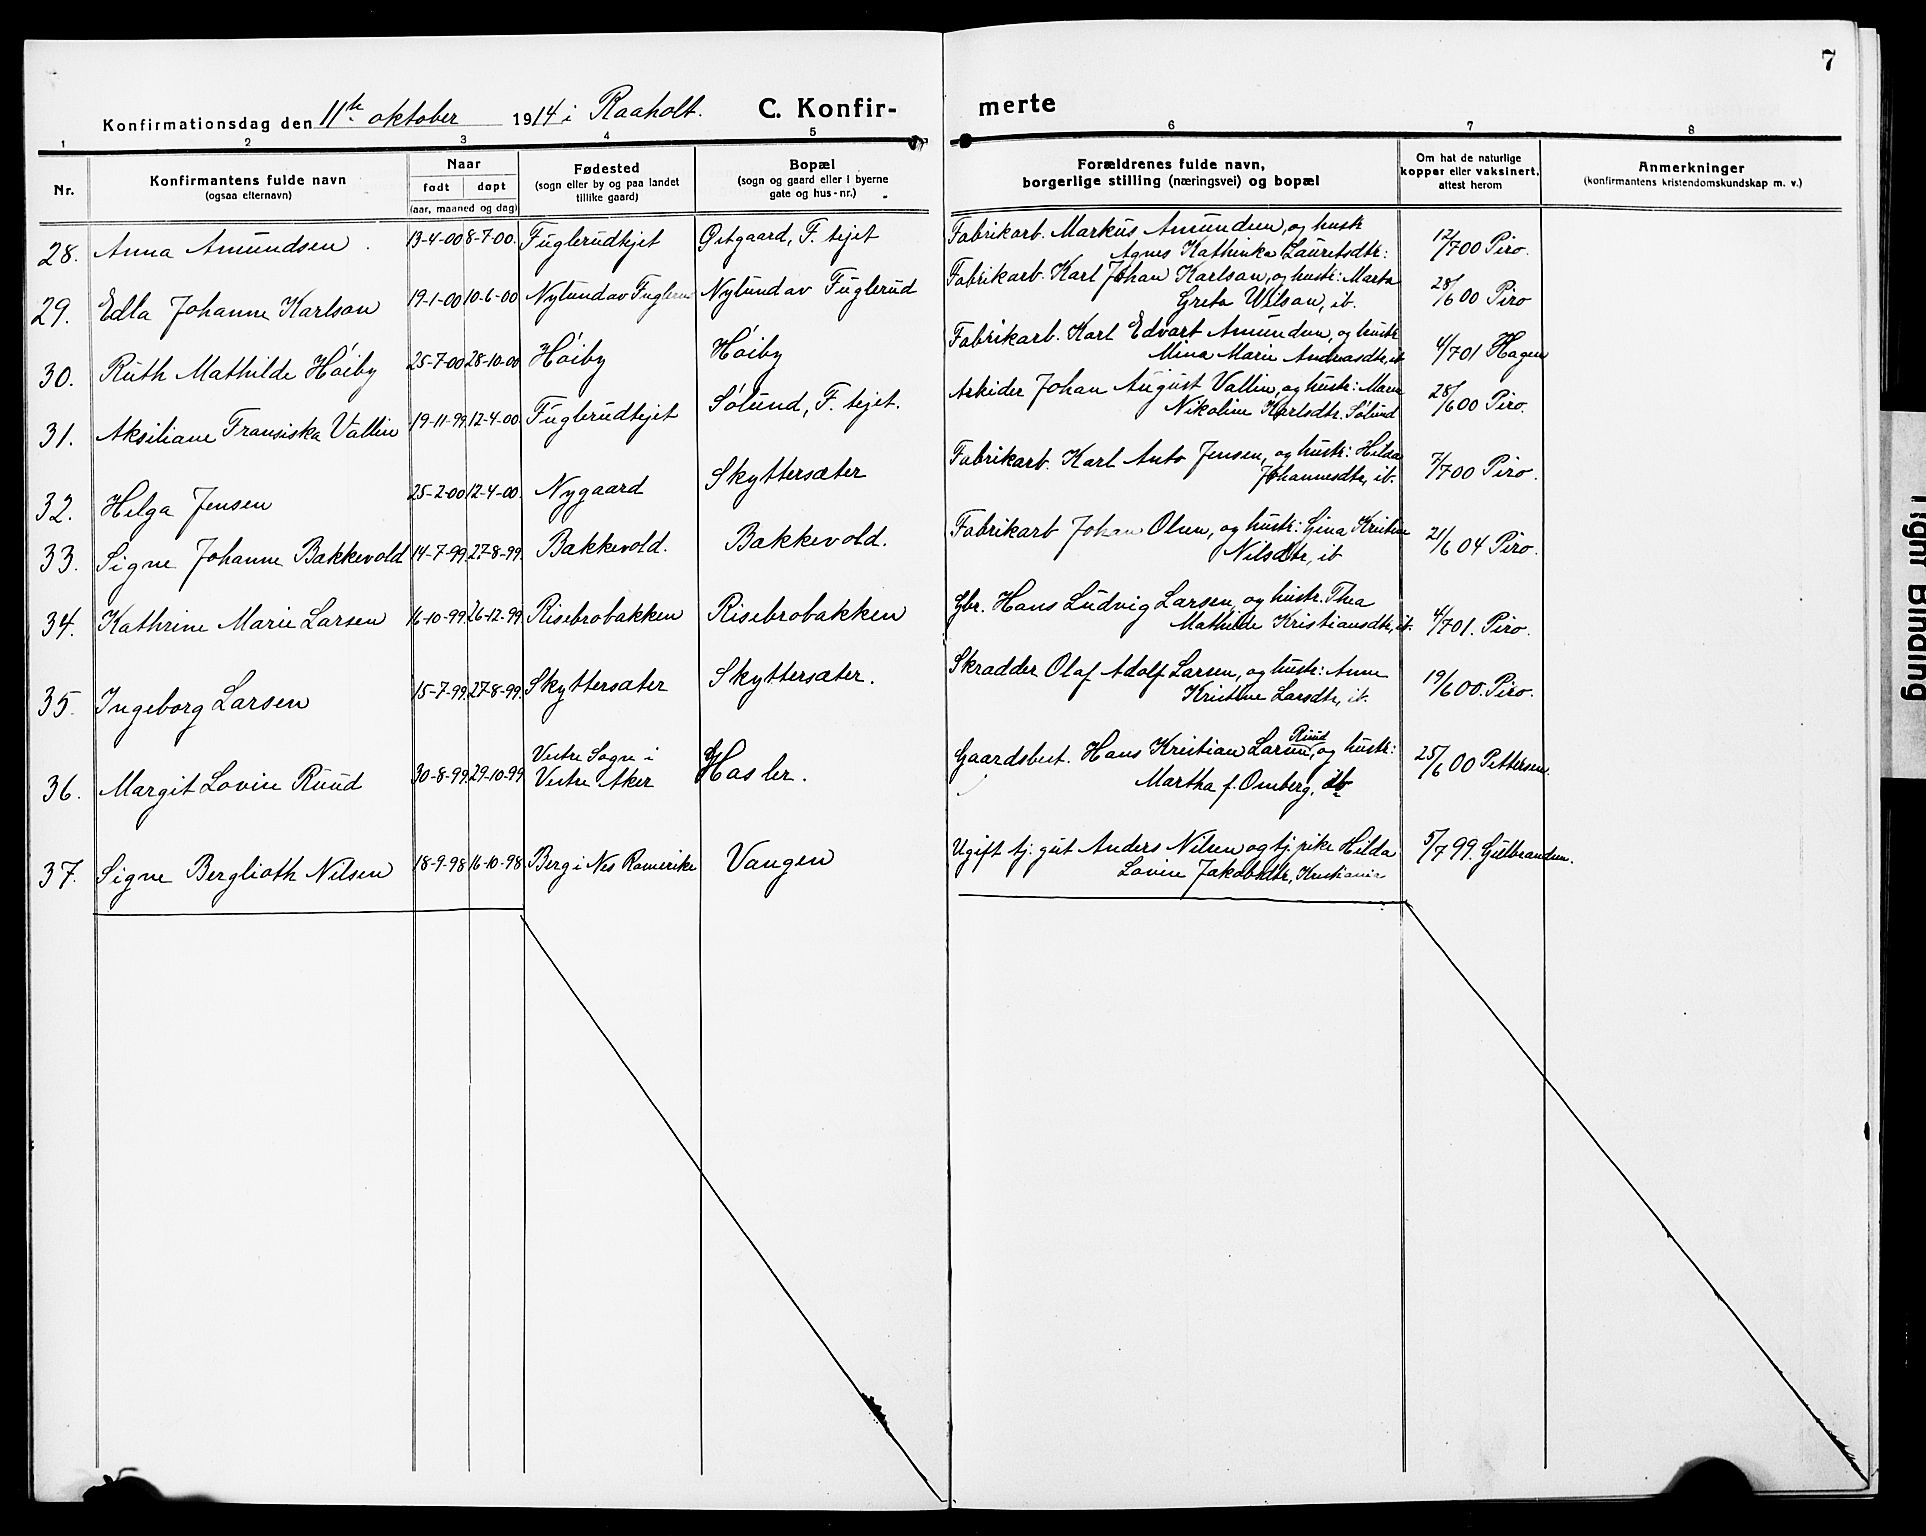 7
Konfirmationsdag den 11te oktober 1914 i Raaholt. C. Konfir- merte
1 2 3 4 5 6 7 8
Nr.
Konfirmantens fulde navn
(ogsaa efternavn)
Naar
født døpt
(aar, maaned og dag)
Fødested
(sogn eller by og paa landet
tillike gaard)
Bopæl
(sogn og gaard eller i byerne
gate og hus-nr.)
Forældrenes fulde navn,
borgerlige stilling (næringsvei) og bopæl
Om hat de naturlige
kopper eller vaksinert,
attest herom
Anmerkninger
(konfirmantens kristendomskundskap m. v.)
28. Anna Amundsen. 13-4-00 8-7-00. Fuglerudejet Østgaard, F. ejet Fabrikarb. Markus Amundsen, og hustr
Agnes Kathinka Lauretsdtr: 12/7 00 Piro.
29. Edla Johanne Karlson 19-1-00 10-6-00 Nylund av Fuglerud Nylund av Fuglerud Fabrikarb. Karl Johan Karlson, og hustr: Marta
Greta Wilson, ib. 28/6 00 Piro
30. Ruth Mathilde Høiby 25-7-00 28-10-00 Høiby Høiby Fabrikarb. Karl Edvart Amundsen, og hustr
Mina Marie Andreasdtr, ib 4/7 01 Hagen
31. Aksiliane Fransiska Vallin 19-11-99. 12-4-00. Fuglerudejet Sølund, F. ejet. Arbeider Johan August Vallin, og hustr: Maren
Nikoline Karlsdtr. Sølund 28/6 00 Piro.
32. Helga Jensen 25-2-00 12-4-00. Nygaard Skyttersæter Fabrikarb. Karl Anto Jensen, og hustr: Hilda
Johannesdtr, ib. 7/7 00 Piro.
33. Signe Johanne Bakkevold 14-7-99. 27-8-99. Bakkevold. Bakkevold. Fabrikarb Johan Olsen, og hustr: Gina Kristine
Nilsdtr, ib 21/6 04 Piro.
34. Kathrine Marie Larsen 16-10-99. 26-12-99 Risebrobakken Risebrobakken Gbr. Hans Ludvig Larsen, og hustr. Thea
Mathilde Kristiansdtr, ib. 4/7 01. Piro.
35. Ingeborg Larsen 15-7-99. 27-8-99. Skyttersæter Skyttersæter. Skradder Olaf Adolf Larsen, og hustr: Anne
Kristine Larsdtr, ib. 19/6 00. Piro.
36. Margit Lovise Ruud 30-8-99. 29-10-99 Vestre Sogn i
Vestre Aker Hasler. Gaardsbest. Hans Kristian Larsen Ruud, og hustr:
Martha f. Omberg, ib 25/6 00 Pettersen.
37. Signe Berglioth Nilsen 18-9-98 16-10-98 Berg i Nes Romerike Vangen Ugift tj: gut Anders Nilsen og tj pike Hilda
Lovise Jakobsdtr, Kristiania 5/7 99. Gulbrandsen.
Tight Binding